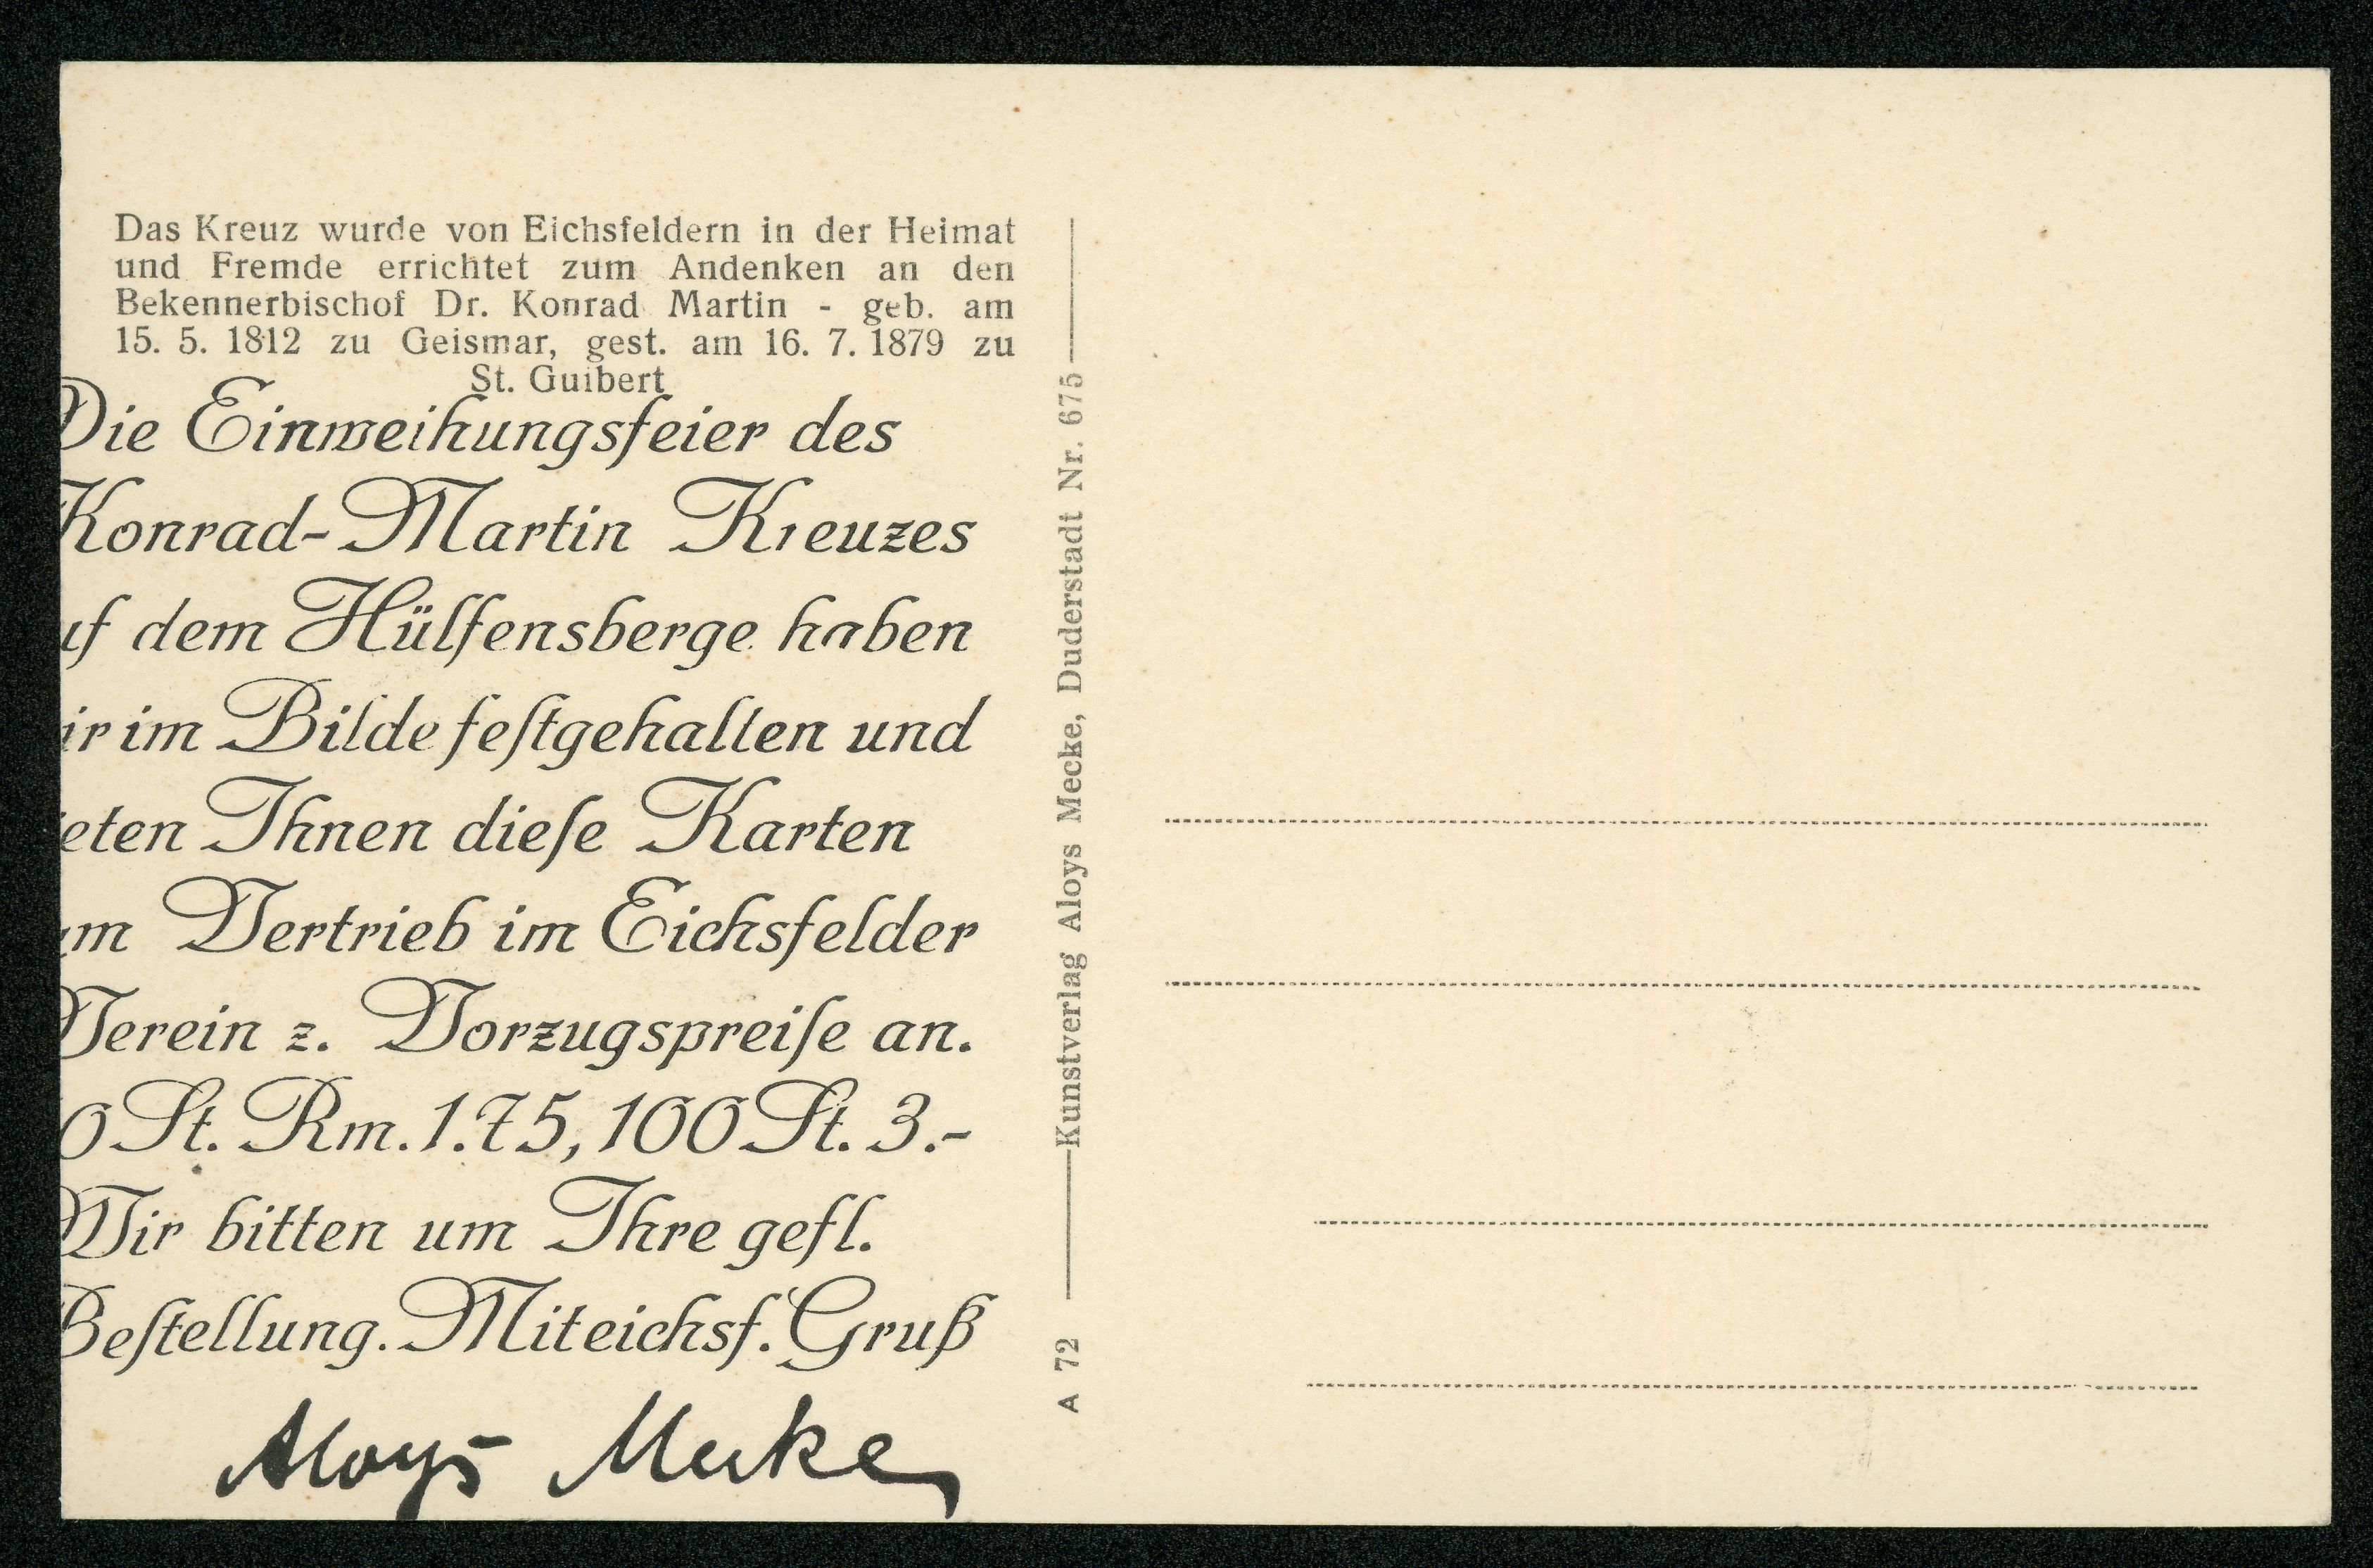 Das Kreuz wurde von Eichsfeldern in der Heimat
und Fremde errichtet zum Andenken an den
Bekennerbischof Dr. Konrad Martin - geb. am
15. 5. 1812 zu Geismar, gest. am 16. 7. 1879 zu
St. Guibert
Die Einweihungsfeier des
Konrad-Martin Kreuzes
uf dem Hülfensberge haben
ir im Bilde feſtgehalten und
eten Ihnen dieſe Karten
m Vertrieb im Eichsfelder
Verein z. Vorzugspreiſe an.
0 St. Rm. 1.75, 100 St. 3.-
Wir bitten um Ihre gefl.
Beſtellung. Mit eichsf. Gruß
Aloys Mecke
Kunstverlag Aloys Mecke, Duderstadt Nr. 675
A 72